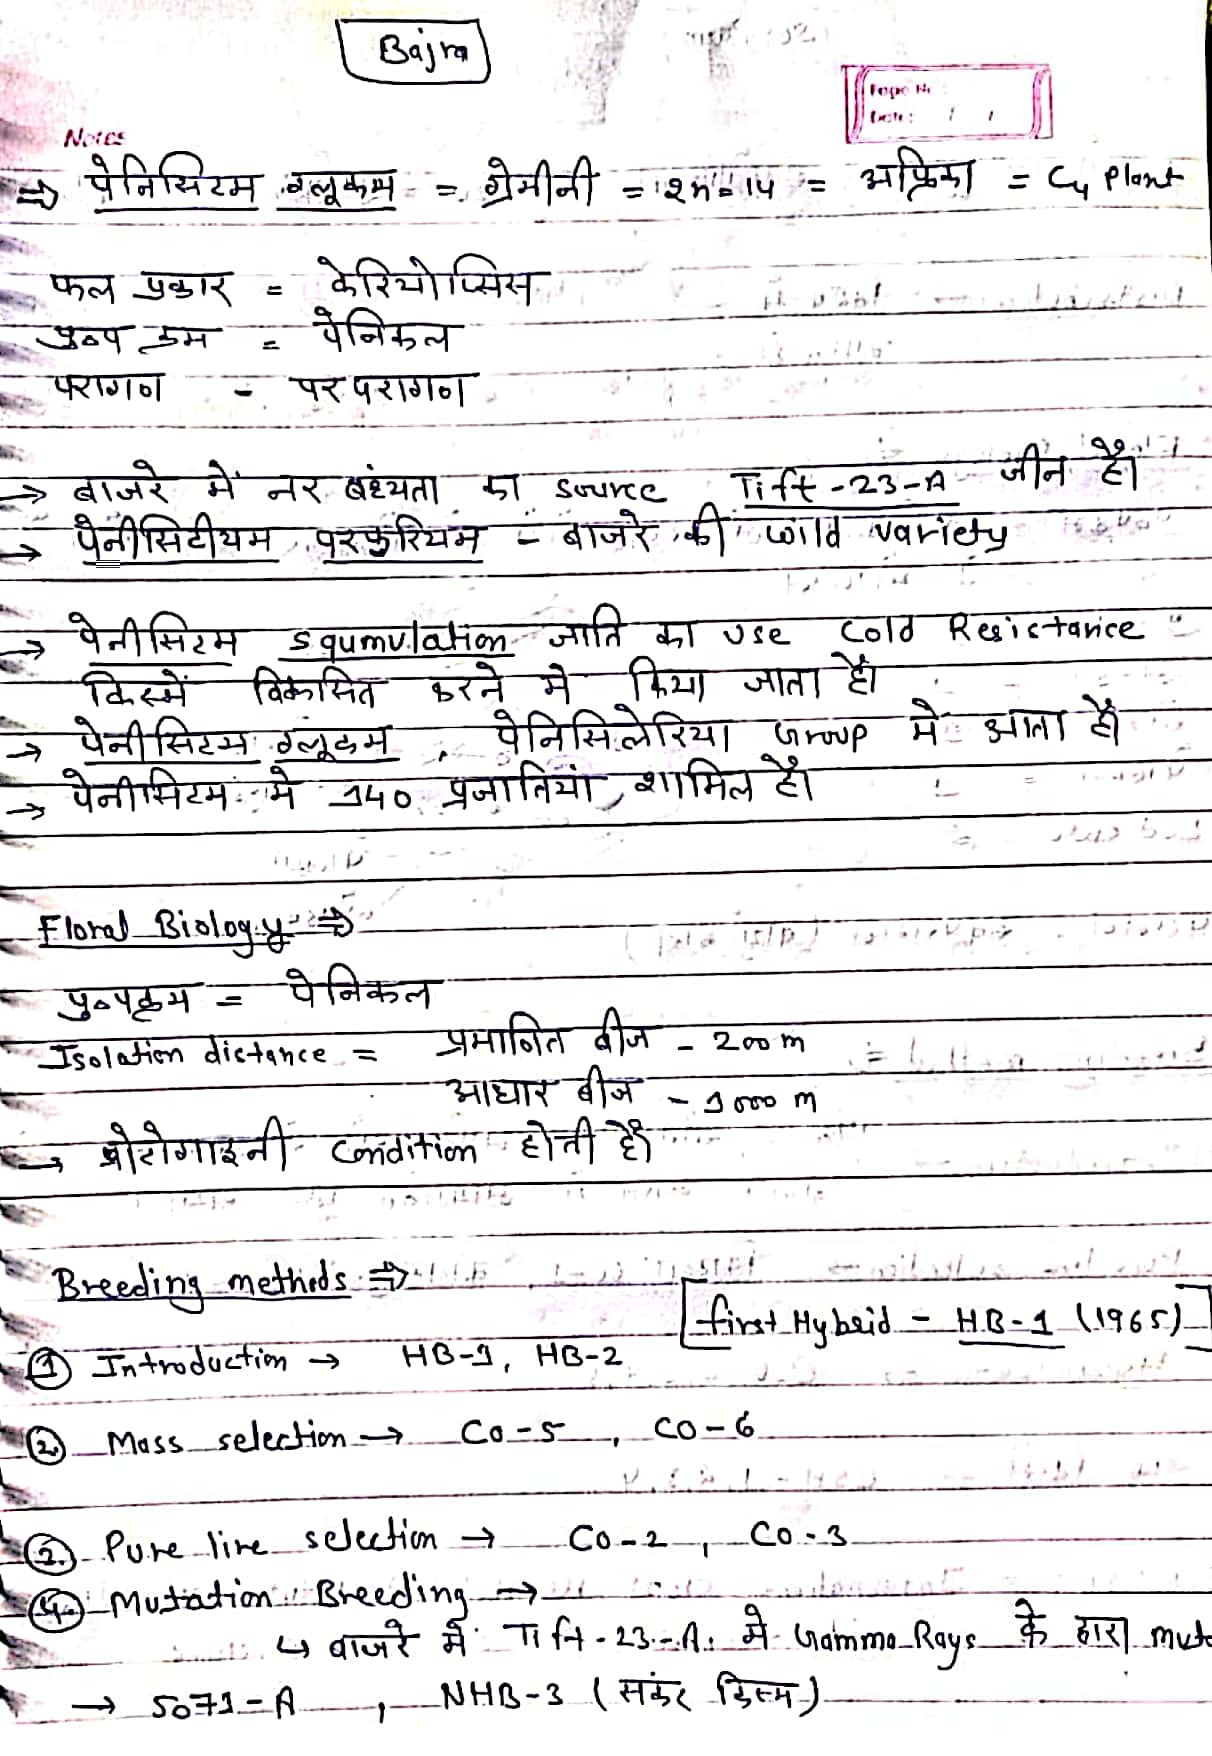 Bajra
Page No.
Date: / /
Notes
⇒ पेनिसिटम ग्लूकम = ग्रेमीनी = 2n=14 = अफ्रिका = C4 Plant
फल प्रकार = केरियोप्सिस
पुष्प क्रम = पेनिकल
परागण - पर परागण
→ बाजरे में नर बंध्यता का source Tift-23-A जीन है।
→ पेनीसिटीयम परफुरियम - बाजरे की wild variety
→ पेनीसिटम squmulation जाति का use Cold Resistance
किस्में विकसित करने मे किया जाता है।
→ पेनीसिटम ग्लूकम, पेनिसिलेरिया Group मे आता है।
→ पेनीसिटम मे 140 प्रजातियां शामिल है।
Floral Biology ⇒
पुष्पक्रम = पेनिकल
Isolation distance = प्रमाणित बीज - 200 m
आधार बीज - 1000 m
→ प्रोटोगाइनी condition होती है।
Breeding methods ⇒
[first Hybrid - HB-1 (1965)]
① Introduction → HB-1, HB-2
② Mass selection → CO-5, CO-6
③ Pure line selection → CO-2, CO-3
④ Mutation Breeding →
↳ बाजरे मे Tift-23-A. मे Gamma Rays के द्वारा mut
→ 5071-A, NHB-3 (संकर किस्म)